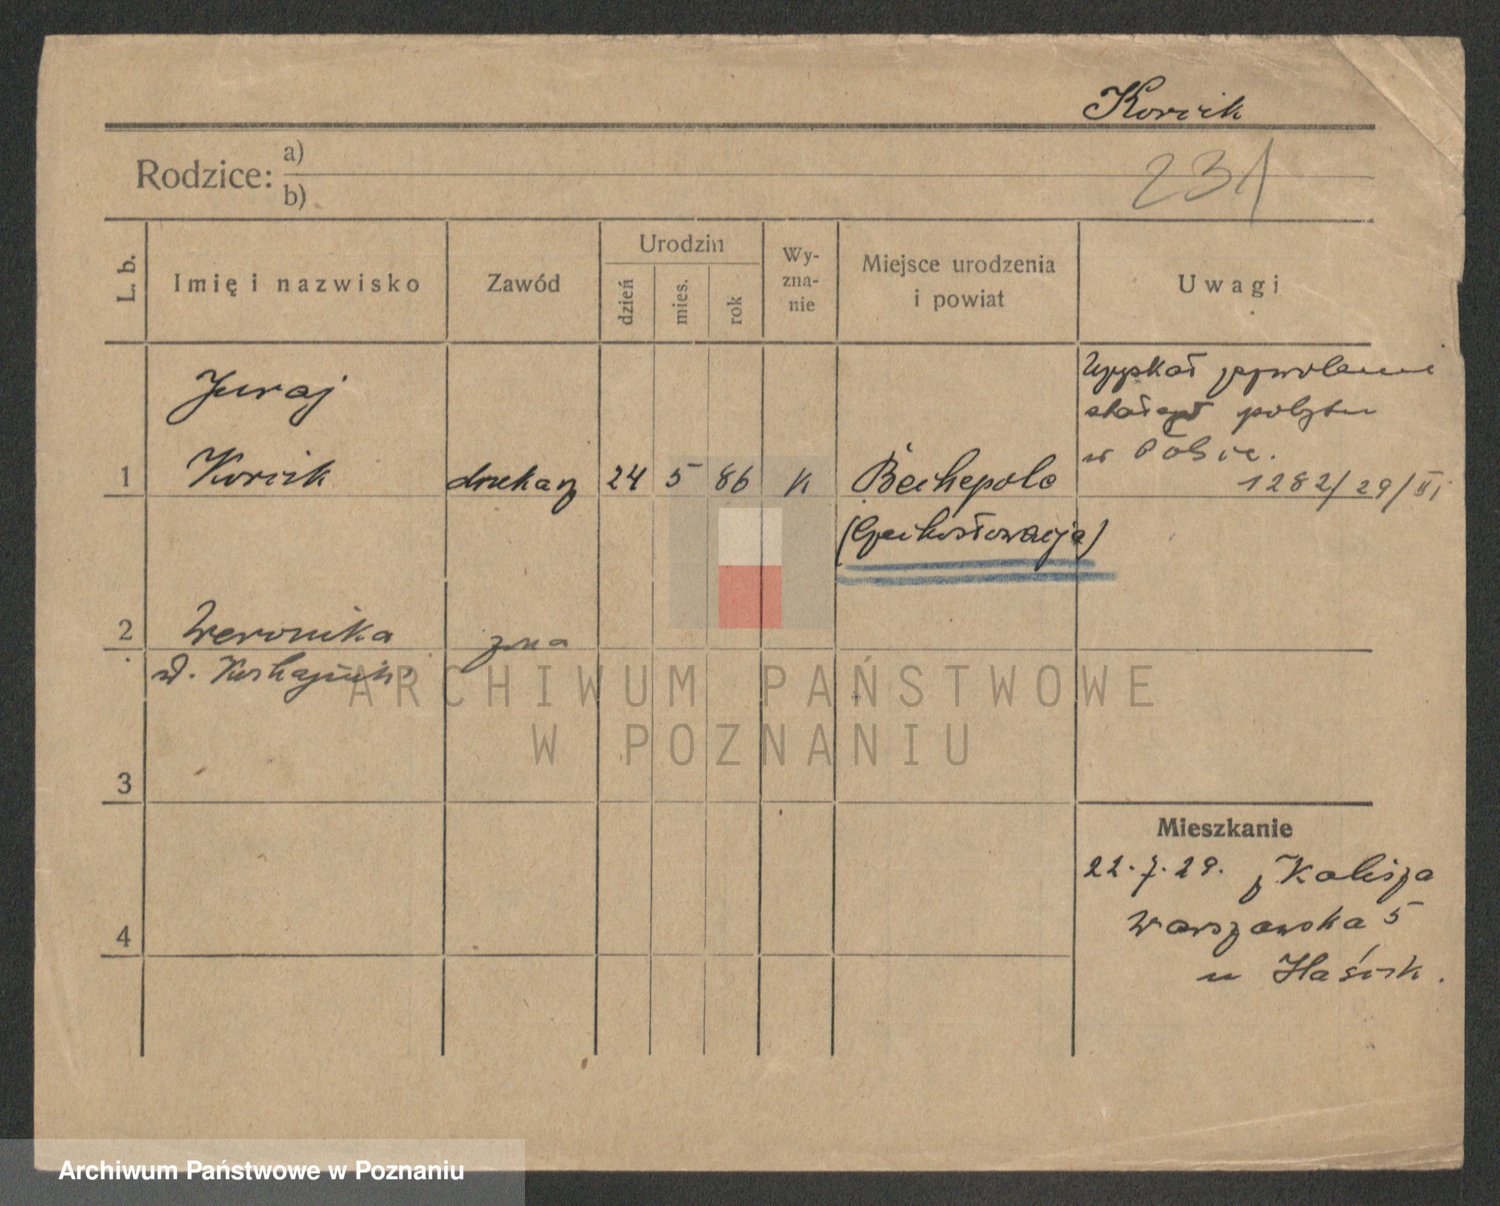 Korcik
Rodzice: a)
b)
231
L. b.
Imię i nazwisko
Zawód
Urodzin
dzień
mies.
rok
Wy-
zna-
nie
Miejsce urodzenia
i powiat
Uwagi
1
Juraj
Korcik
drukarz
24
5
86
K
(Czechosłowacja)
Uzyskał zezwolenie
pobytu
w Polsce.
1282/29/III
2
Weronika
żona
3
4
Mieszkanie
22.7.29. z Kalisza
Warszawska 5
u
ARCHIWUM PAŃSTWOWE
W POZNANIU
Archiwum Państwowe w Poznaniu